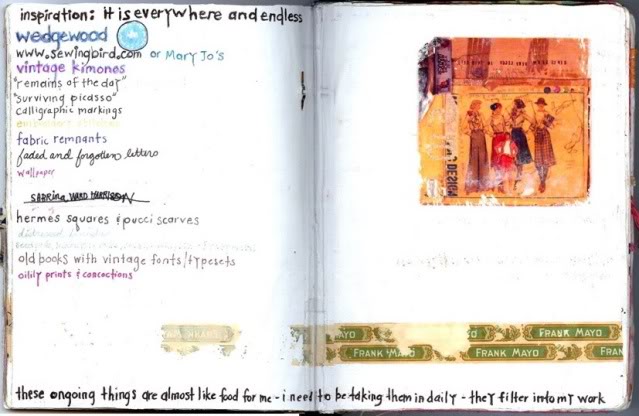 inspiration: it is everywhere and endless
wedgewood
www.sewingbird.com or Mary Jo's
vintage kimonos
"remains of the day"
"surviving picasso"
calligraphic markings
fabric remnants
faded and forgotten letters
wallpaper
hermes squares & pucci scarves
old books with vintage fonts/typesets
oilily prints & concoctions
DESIGN
MAYO
FRANK MAYO
FRANK MAYO
FRANK MAYO
FRAN
these ongoing things are almost like food for me - i need to be taking them in daily - they filter into my work